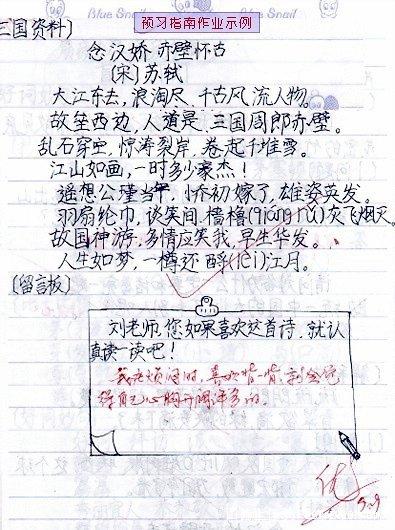 Blue Snail
预习指南作业示例
Blue Snail
三国资料〕
念汉娇 赤壁怀古
〔宋〕苏轼
大江东去，浪淘尽，千古风流人物。
故垒西边，人道是，三国周郎赤壁。
乱石穿空，惊涛裂岸，卷起千堆雪。
江山如画，一时多少豪杰！
遥想公瑾当年，小乔初嫁了，雄姿英发。
羽扇纶巾，谈笑间，樯橹(qiáng rǔ)灰飞烟灭。
故国神游，多情应笑我，早生华发。
人生如梦，一樽还酹(lèi)江月。
〔留言板〕
刘老师，您如果喜欢这首诗，就认
真读一读吧！
我在烦闷时，喜欢背一背，就会觉
得自己心胸开阔许多的。
优
5.9